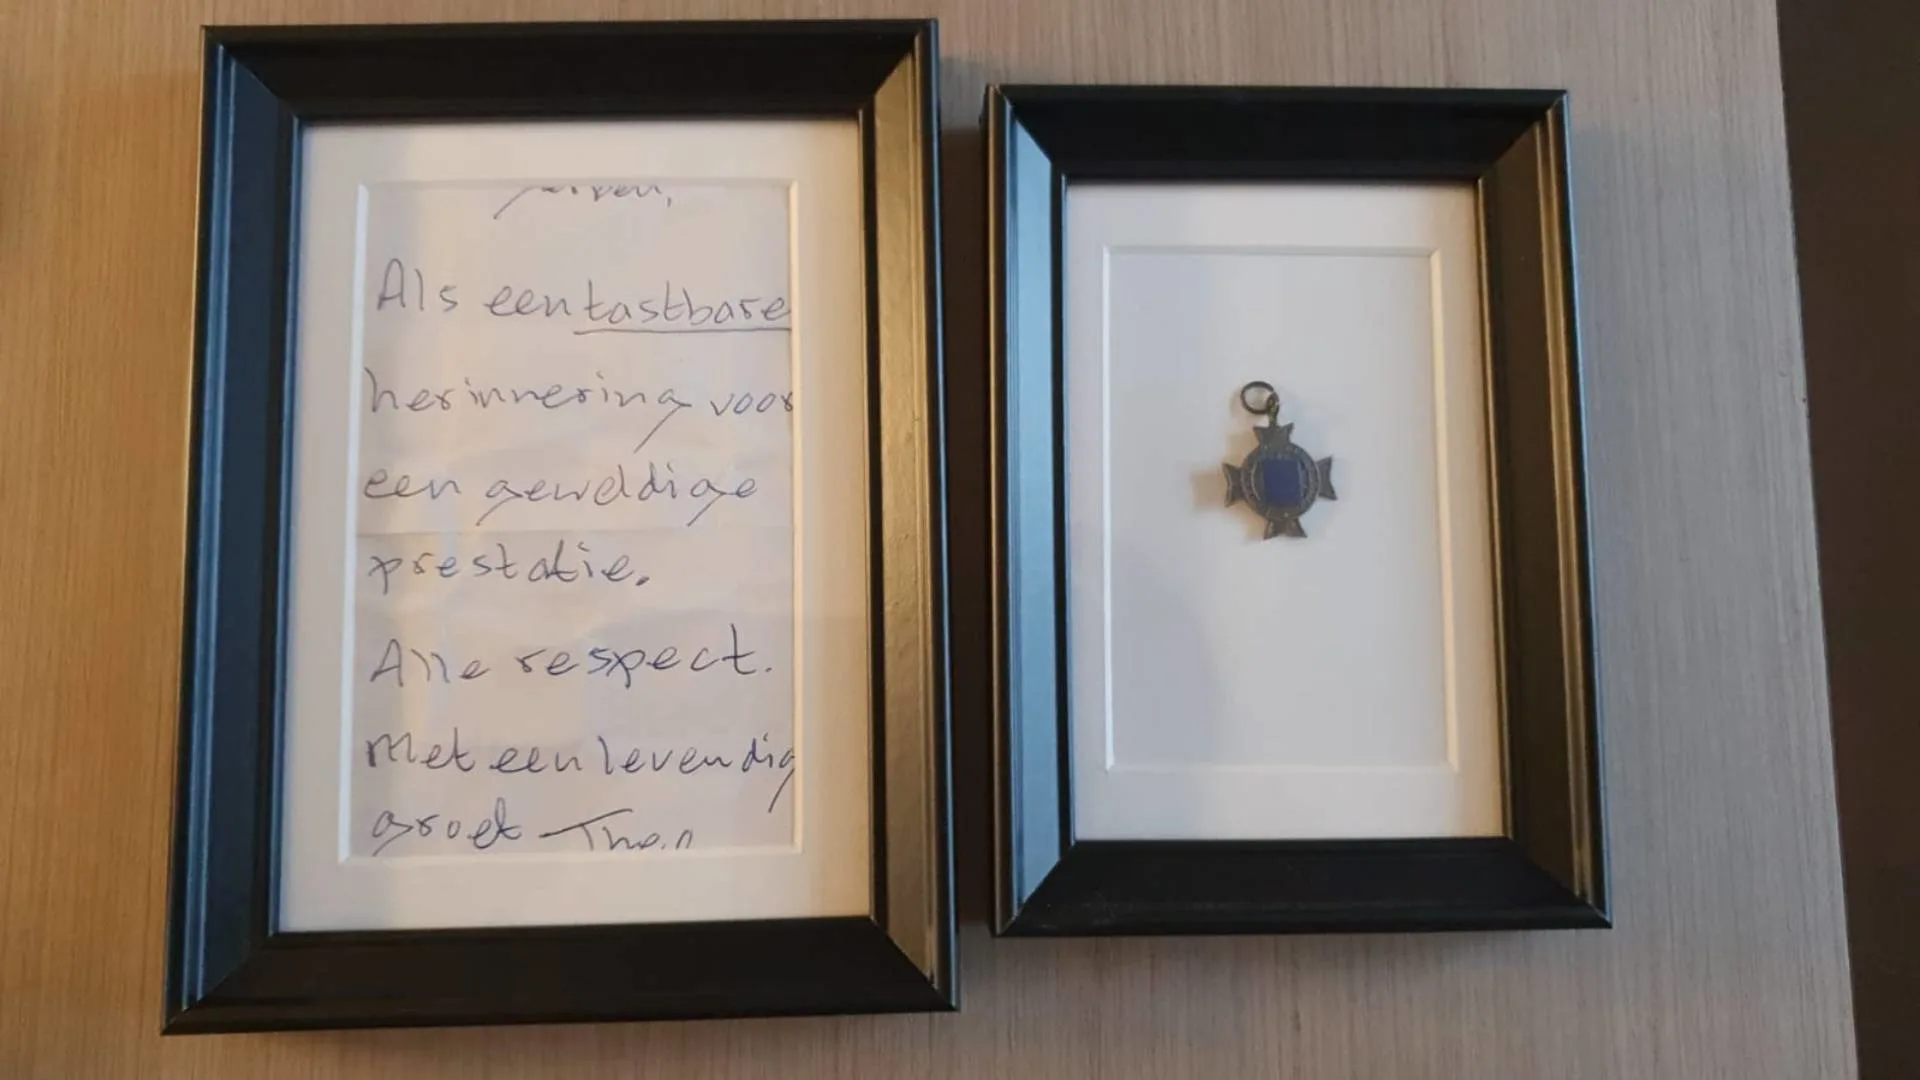 Als een tastbare
herinnering voor
een geweldige
prestatie.
Alle respect.
Met een levendig
groet